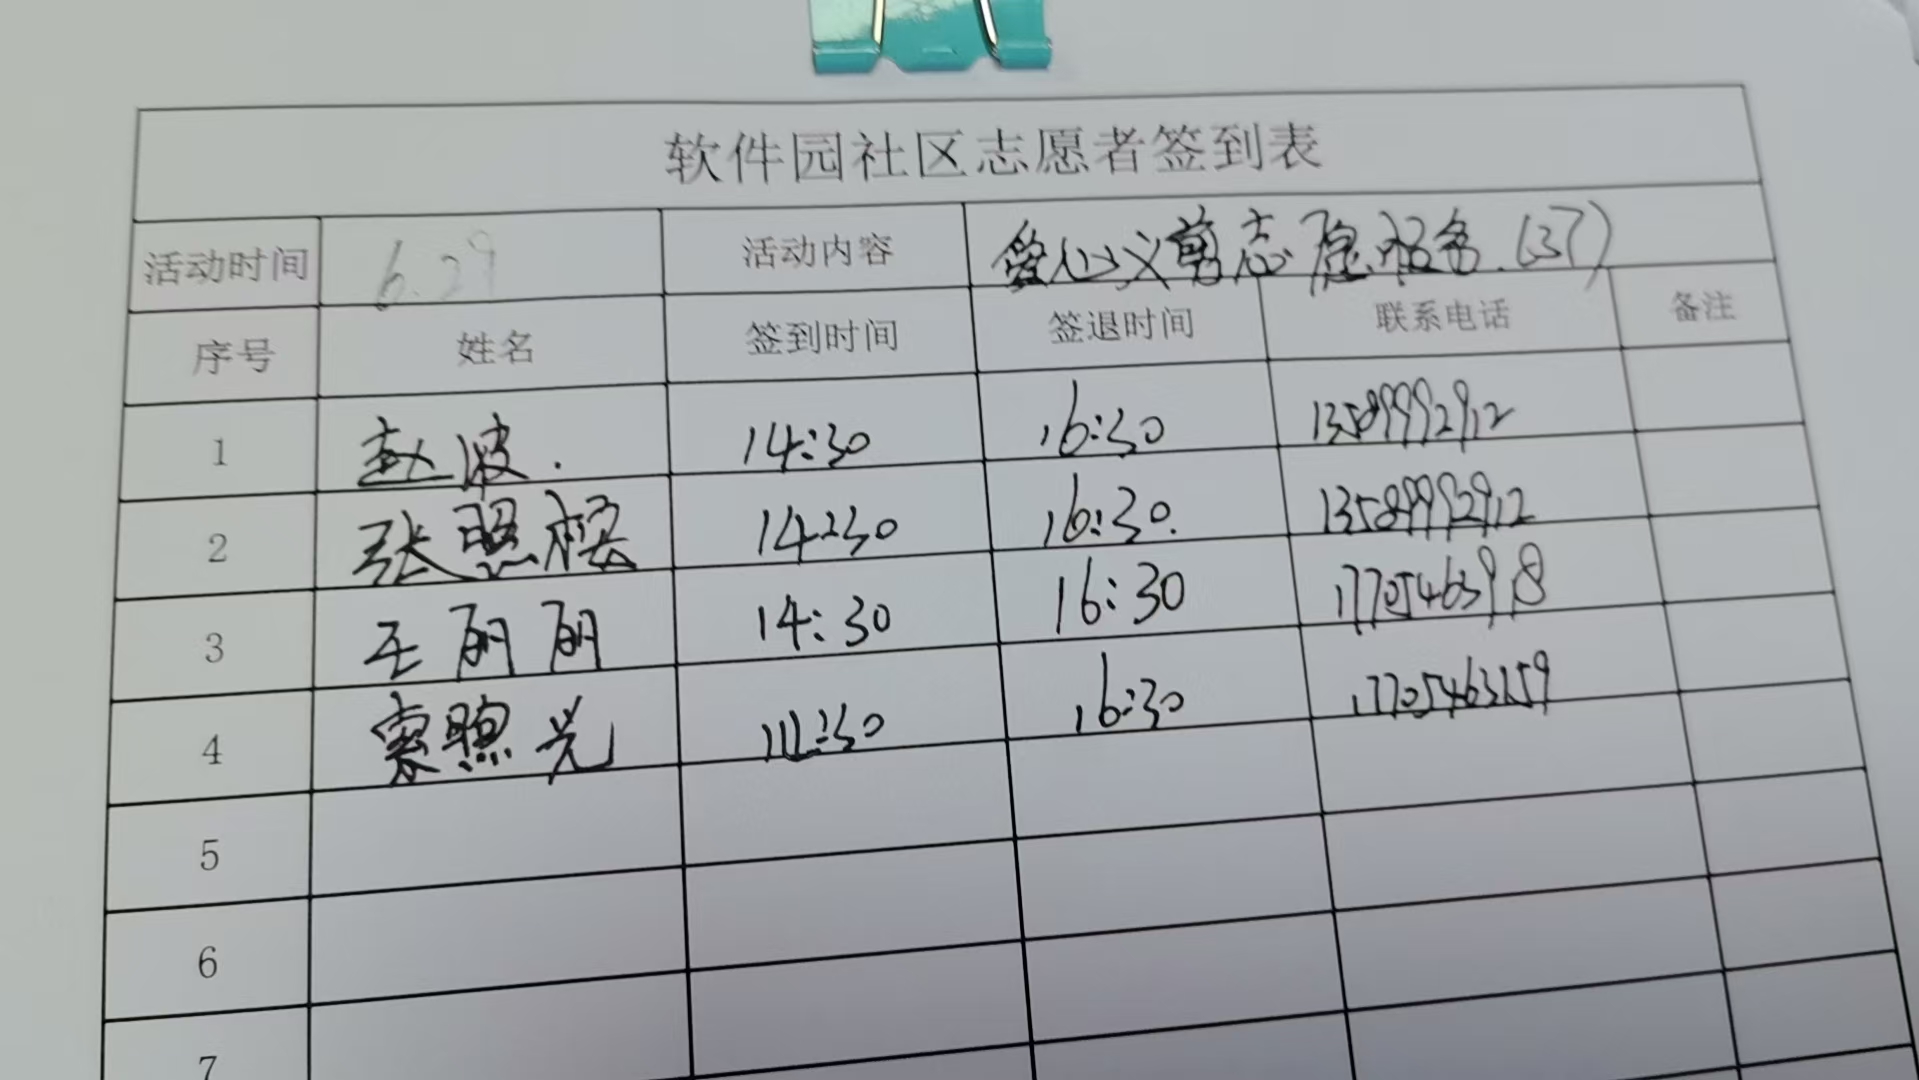 软件园社区志愿者签到表
活动时间 6.29 活动内容 爱心义剪志愿服务.(37)
序号 姓名 签到时间 签退时间 联系电话 备注
1 赵波. 14:30 16:30 13589992912
2 张照樱 14:30 16:30. 13589992912
3 王丽丽 14:30 16:30 17705463918
4 照光 14:30 16:30 17705463159
5
6
7